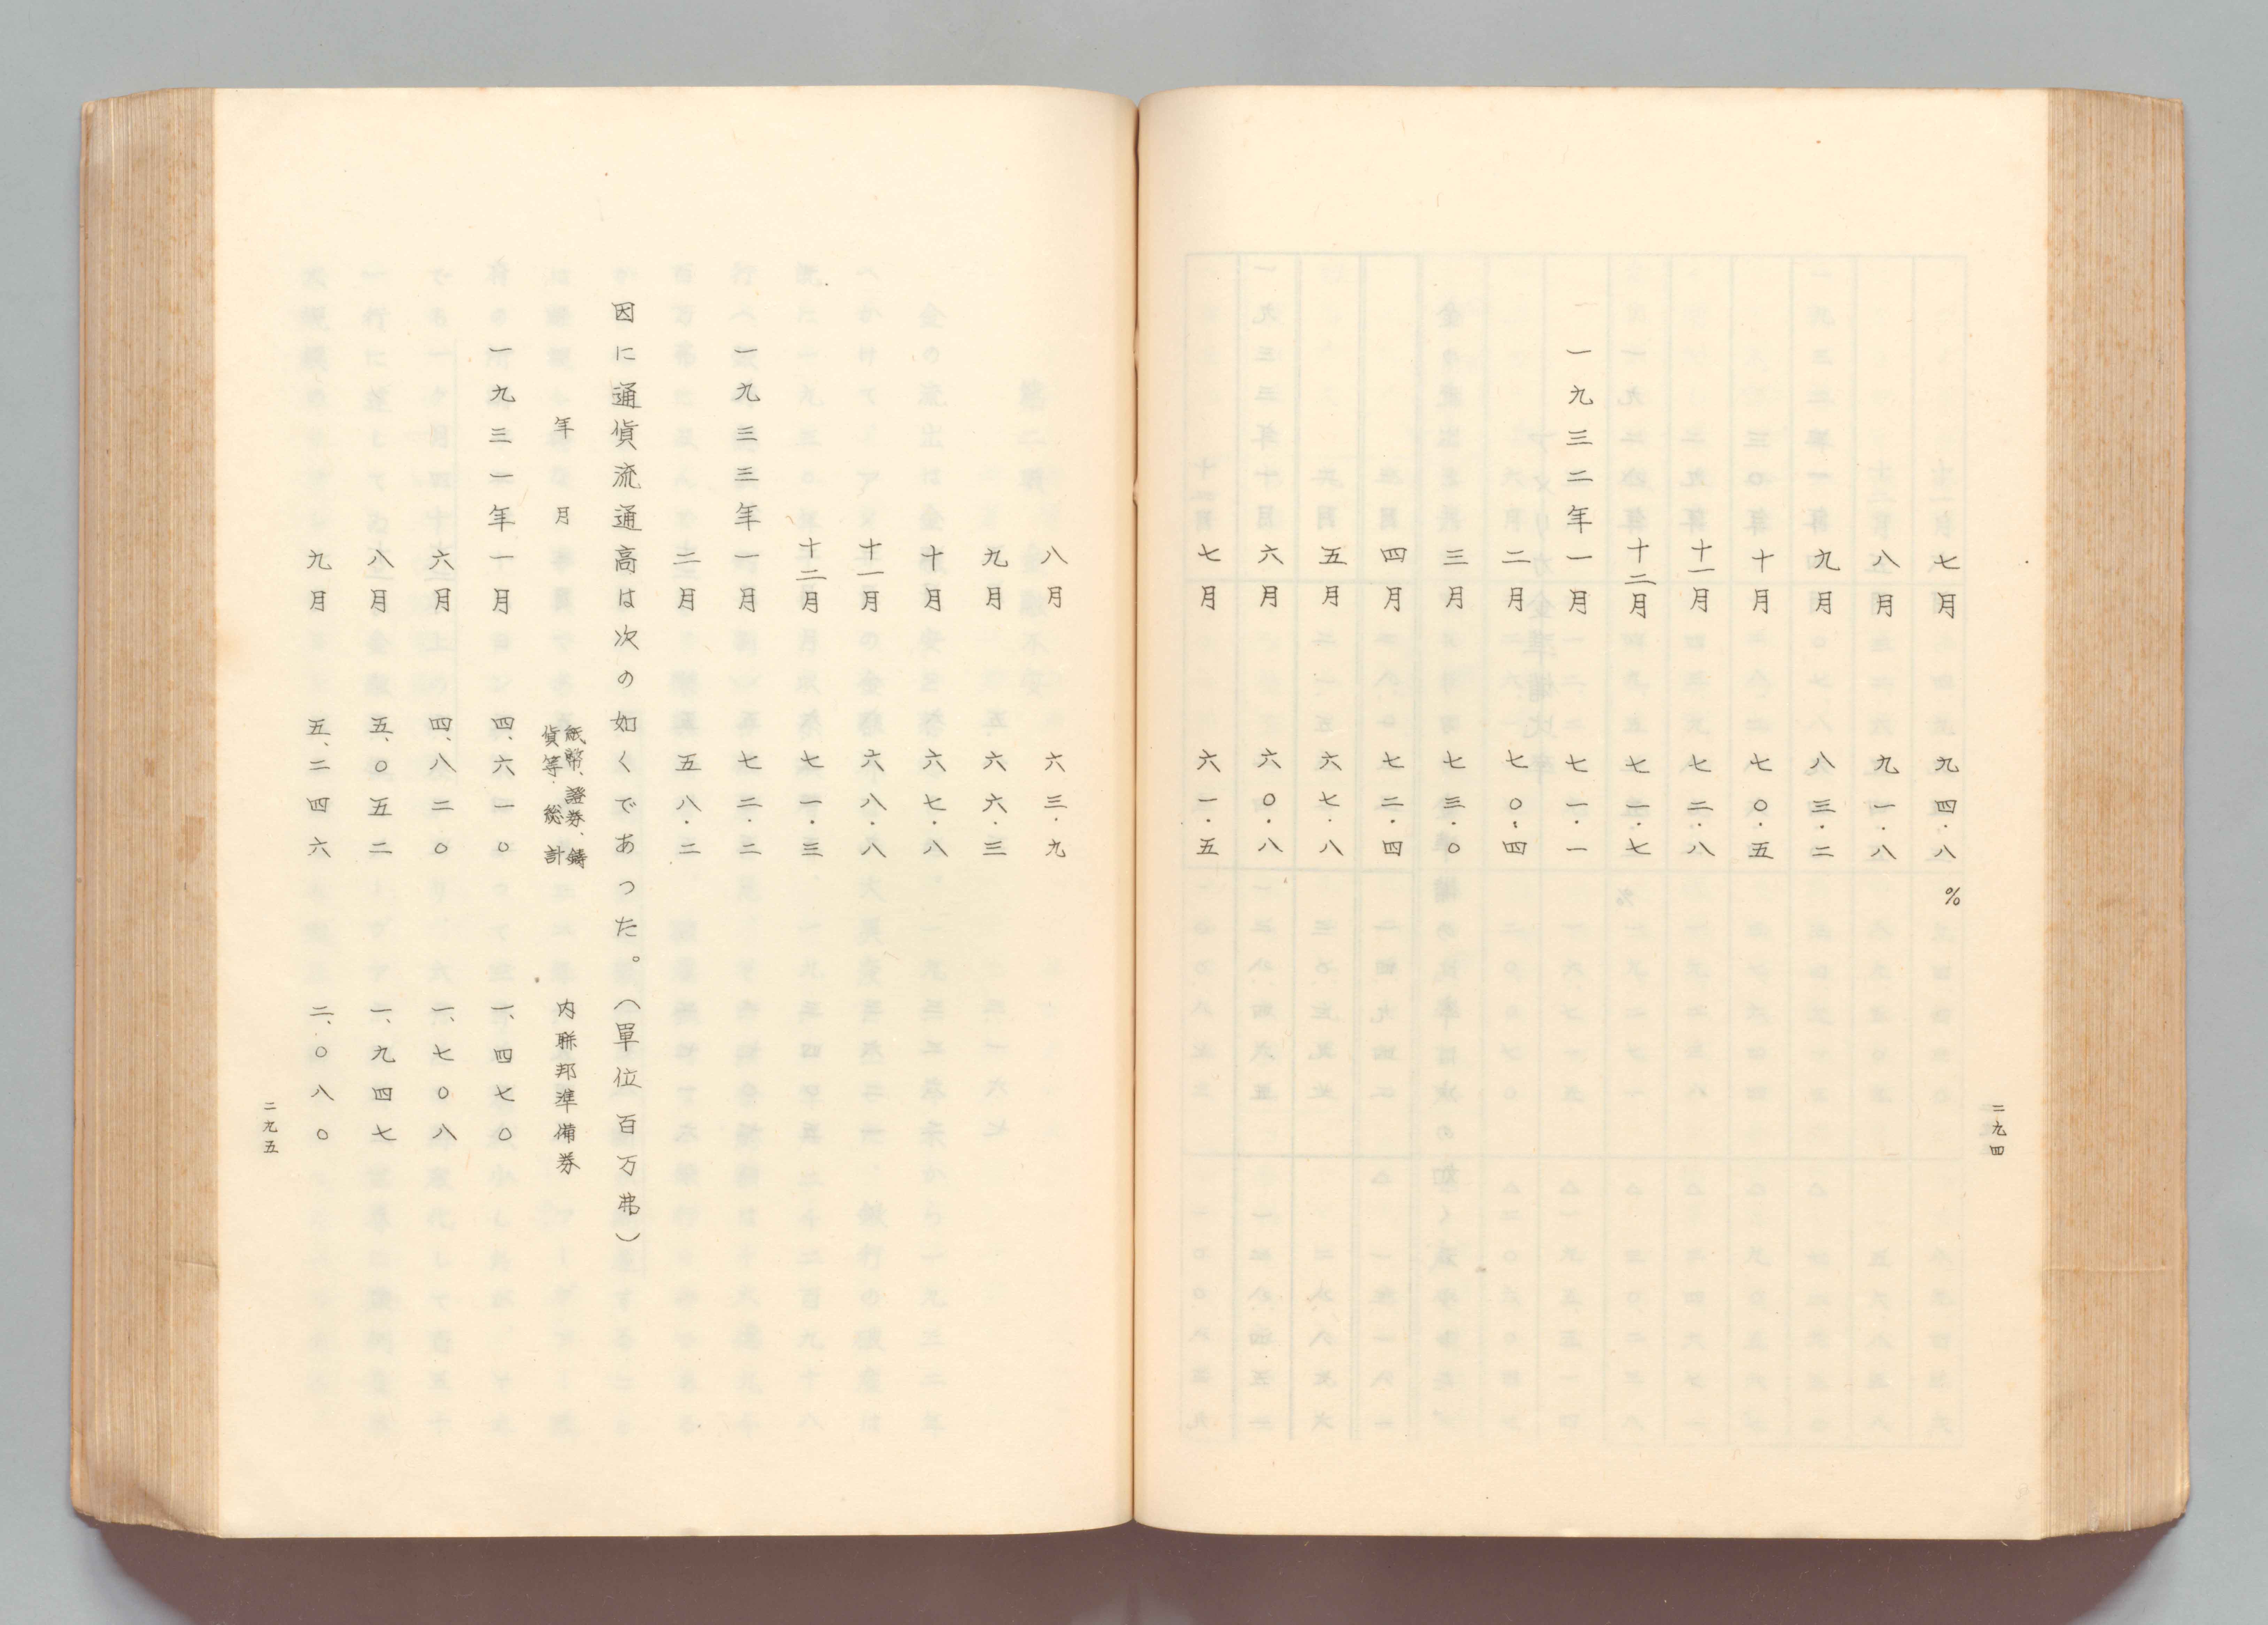 七月 九四・八%
八月 九一・八
九月 八三・二
十月 七〇・五
十一月 七二・八
十二月 七一・七
一九三二年一月 七一・一
二月 七〇・四
三月 七三・〇
四月 七二・四
五月 六七・八
六月 六〇・八
七月 六一・五
二九四
八月 六三・九
九月 六六・三
十月 六七・八
十一月 六八・八
十二月 七一・三
一九三三年一月 七二・二
二月 五八・二
因に通貨流通高は次の如くであった。(單位百万弗)
年月 紙幣、證券、鑄貨等、総計 内聯邦準備券
一九三一年一月 四、六一〇 一、四七〇
六月 四、八二〇 一、七〇八
八月 五、〇五二 一、九四七
九月 五、二四六 二、〇八〇
二九五